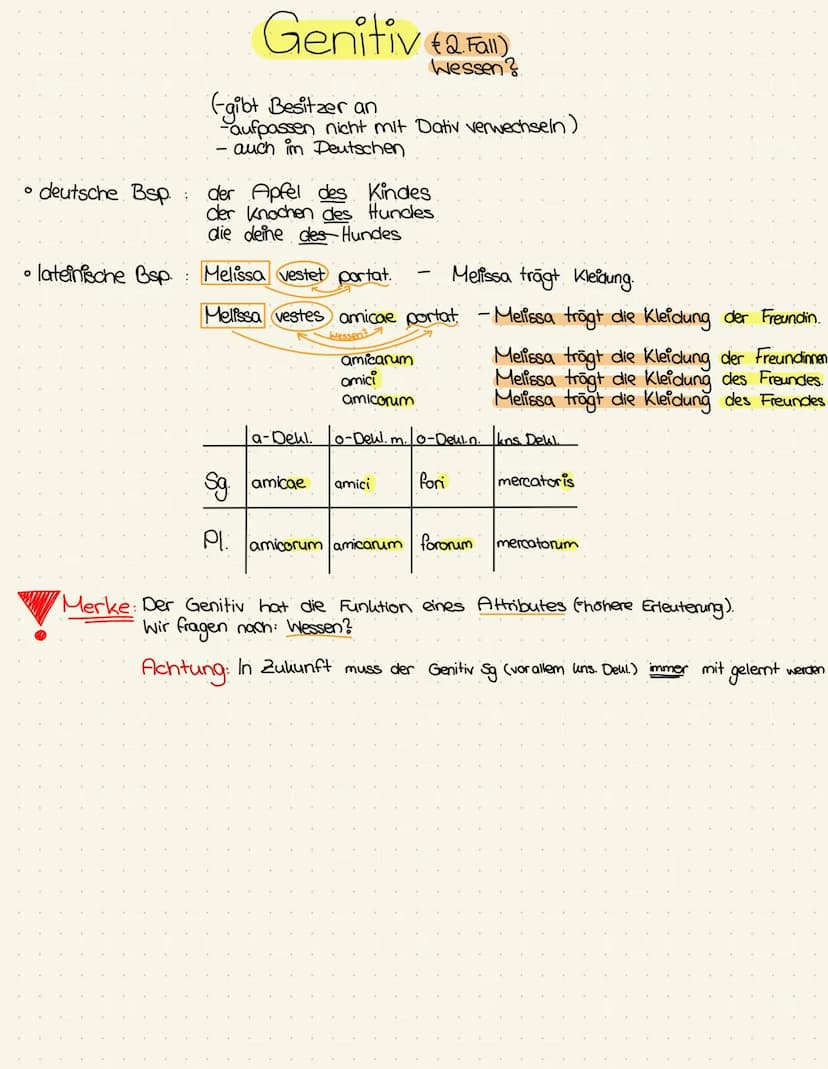 Genitiv (2.Fall)
Wessen?
(-gibt Besitzer an
-aufpassen nicht mit Dativ verwechseln)
- auch im Deutschen
• deutsche Bsp. : der Apfel des Kindes
der Knochen des Hundes
die deine des Hundes
• lateinische Bsp. : Melissa vestet portat. - Melissa trägt Kleidung.
Melissa vestes amicae portat - Melissa trägt die Kleidung der Freundin.
Wessen?
amicarum Melissa trägt die Kleidung der Freundinnen
amici Melissa trägt die Kleidung des Freundes.
amicorum Melissa trägt die Kleidung des Freundes
a-Dekl. o-Dekl. m. o-Dekl.n. kns. Dekl.
Sg. amicae amici fori mercatoris
Pl. amicorum amicarum fororum mercatorum
Merke: Der Genitiv hat die Funktion eines Attributes (=höhere Erleuterung).
Wir fragen nach: Wessen?
Achtung: In Zukunft muss der Genitiv Sg (vor allem kns. Dekl.) immer mit gelernt werden